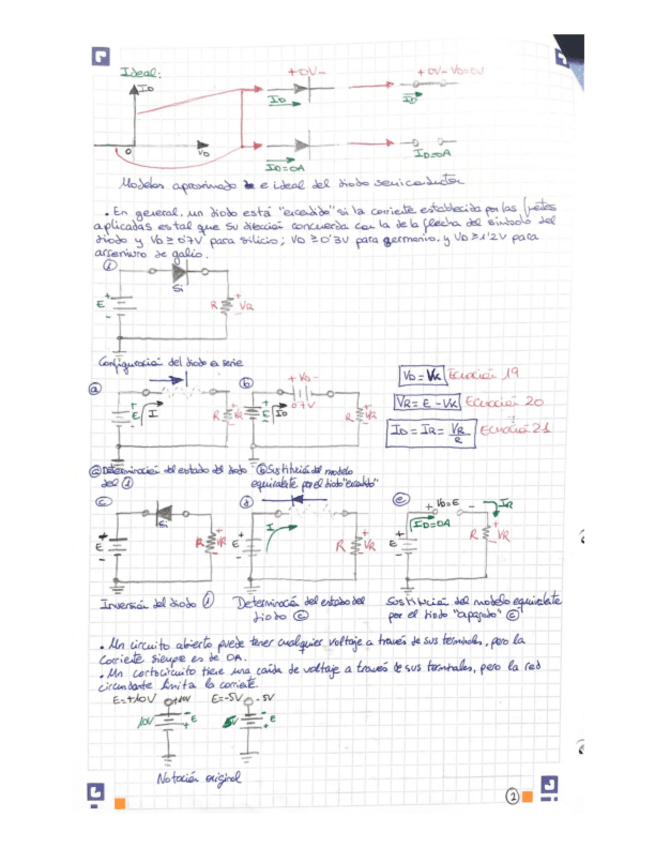 Ideal:
ID
+ 0V -
+ 0V - VD=0V
ID
ID
0
VD
ID=0A
ID=0A
Modelos aproximado e ideal del diodo semiconductor
• En general, un diodo está "encendido" si la corriente establecida por las fuentes
aplicadas es tal que su dirección concuerda con la de la flecha del símbolo del
diodo y VD ≥ 0'7V para silicio; VD ≥ 0'3V para germanio, y VD ≥ 1'2V para
arseniuro de galio.
①
+
Si
E
-
R
+
VR
-
Configuración del diodo en serie
ⓐ
+
E
-
I
R
+
VR
-
ⓑ
+ VD -
0'7V
E
ID
R
+
VR
-
VD = VK Ecuación 19
VR = E - VK Ecuación 20
ID = IR = VR/R Ecuación 21
ⓐ Determinación del estado del diodo
del ①
ⓑ Sustitución del modelo
equivalente por el diodo "encendido"
ⓒ
+
E
-
Si
R
+
VR
-
ⓓ
I
+
E
-
R
+
VR
-
ⓔ
+ VD=E -
IR
ID=0A
+
E
-
R
+
VR
-
Inversión del diodo ①
Determinación del estado del
diodo ⓒ
Sustitución del modelo equivalente
por el diodo "apagado" ⓒ
• Un circuito abierto puede tener cualquier voltaje a través de sus terminales, pero la
corriente siempre es de 0A.
• Un cortocircuito tiene una caída de voltaje a través de sus terminales, pero la red
circundante limita la corriente.
E=+10V
+10V
E=-5V
-5V
10V
-
+
E
5V
-
+
E
Notación original
2